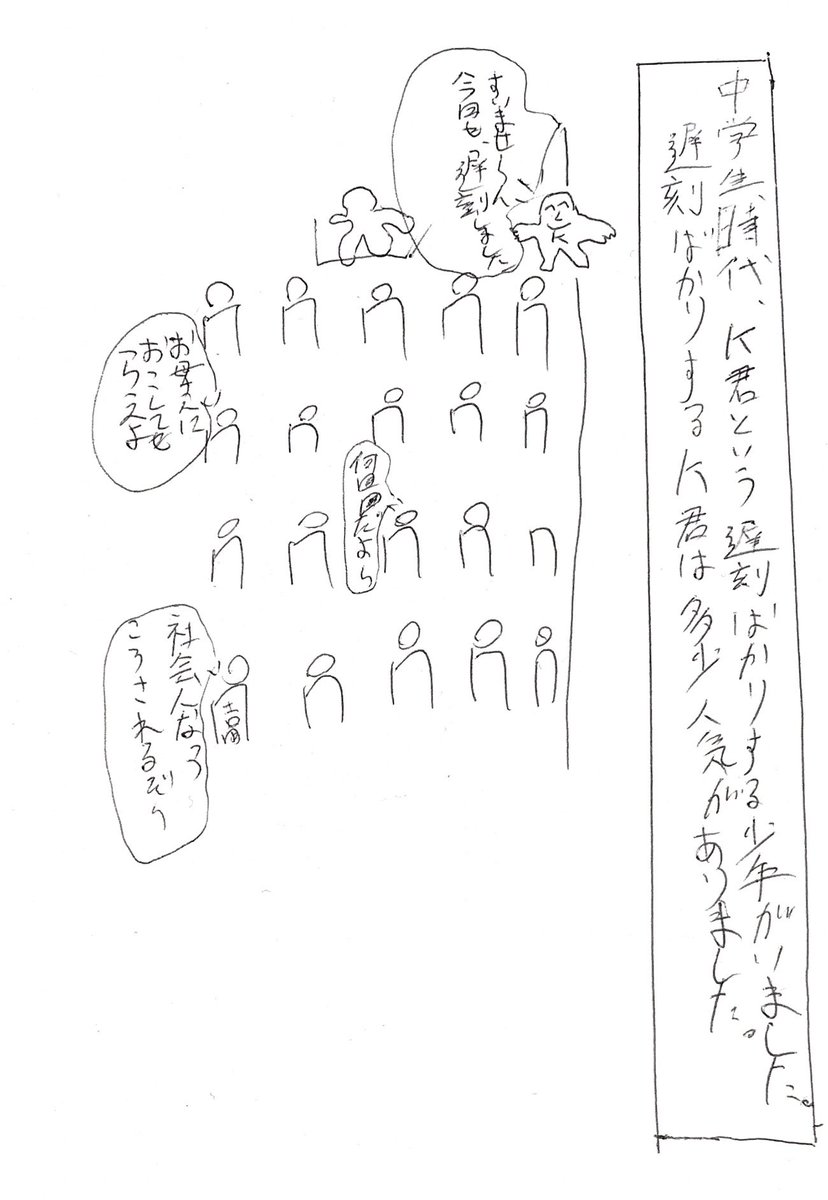 中学生時代、K君という遅刻ばかりする少年がいました。
遅刻ばかりするK君は多少人気がありました。
すいませ〜ん
今回も、遅刻しました
K
お母さんに
おこしても
らえよ
何回目だよら
社会人なら
ころされるぞり
吉田